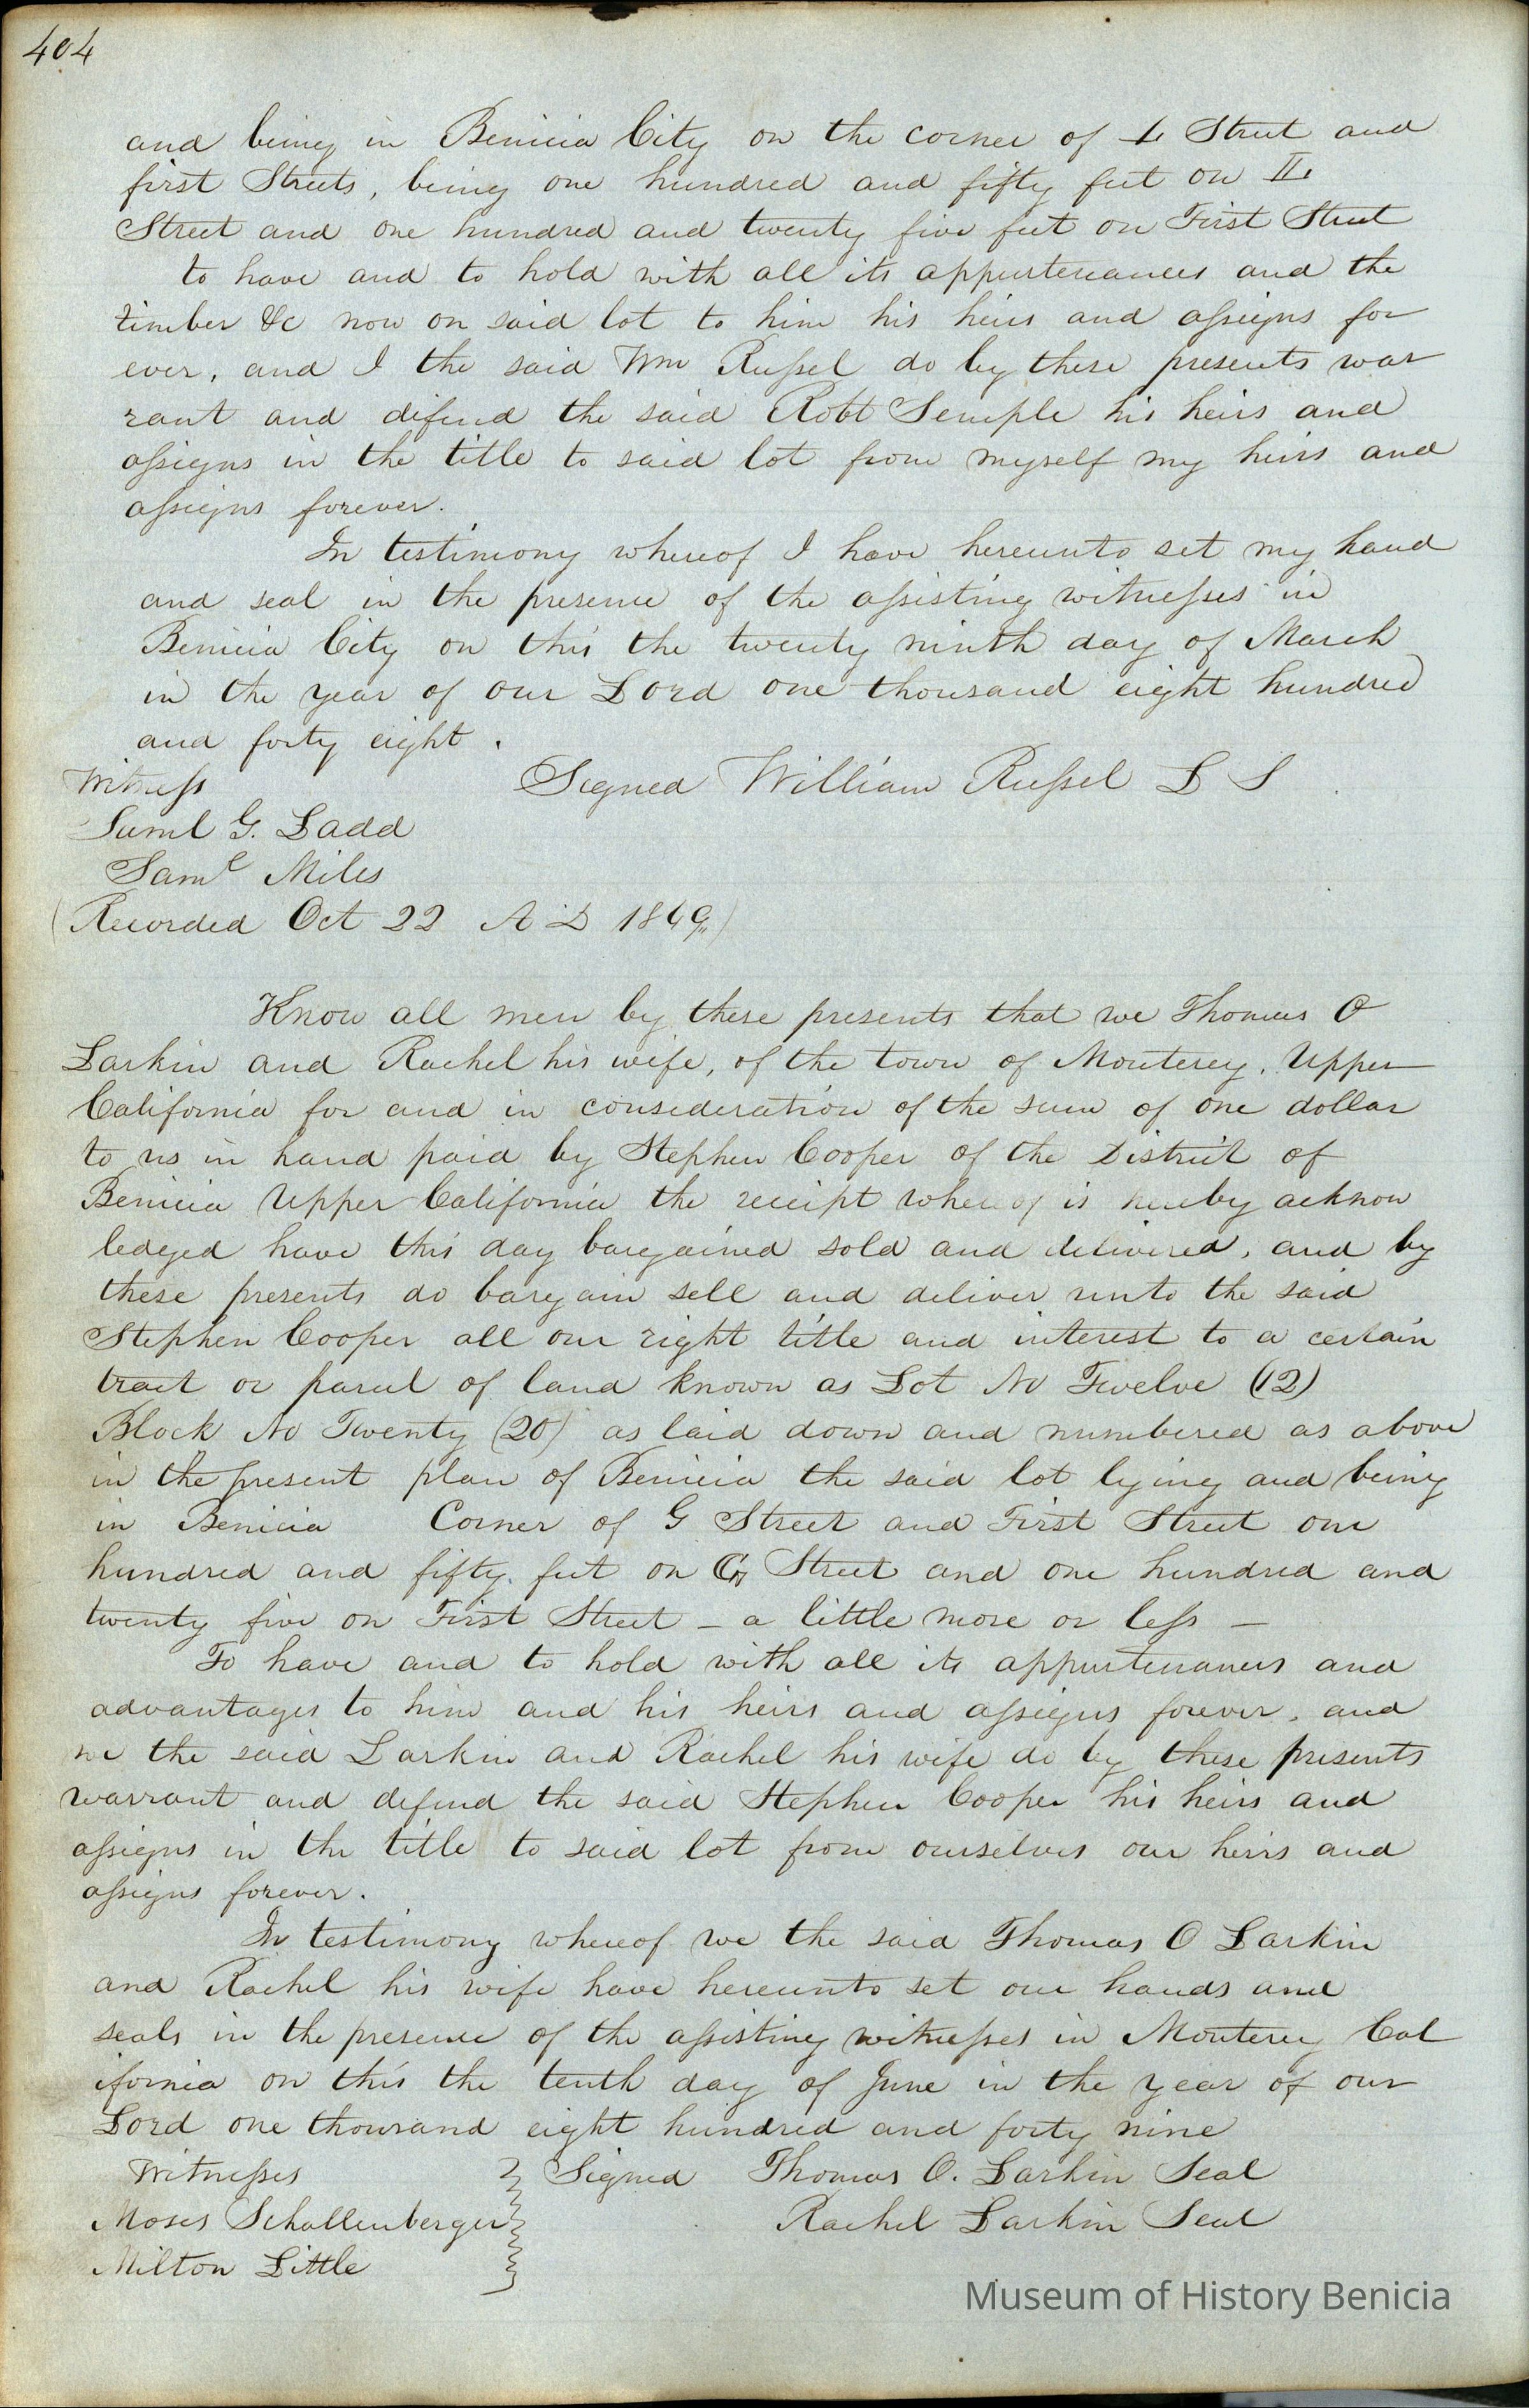 404
and being in Benicia City on the corner of I Street and
first Streets, being one hundred and fifty feet on I
Street and one hundred and twenty five feet on First Street
to have and to hold with all its appurtenances and the
timber &c now on said lot to him his heirs and assigns for
ever, and I the said Wm Russel do by these presents war
rant and defend the said Robt Semple his heirs and
assigns in the title to said lot from myself my heirs and
assigns forever.
In testimony whereof I have hereunto set my hand
and seal in the presence of the assisting witnesses in
Benicia City on this the twenty ninth day of March
in the year of our Lord one thousand eight hundred
and forty eight.
Witness
Signed William Russel L S
Saml G. Ladd
Saml Miles
(Recorded Oct 22 A D 1849)
Know all men by these presents that we Thomas O
Larkin and Rachel his wife, of the town of Monterey, Upper
California for and in consideration of the sum of one dollar
to us in hand paid by Stephen Cooper of the District of
Benicia Upper California the receipt whereof is hereby acknow
ledged have this day bargained sold and delivered, and by
these presents do bargain sell and deliver unto the said
Stephen Cooper all our right title and interest to a certain
tract or parcel of land known as Lot No Twelve (12)
Block No Twenty (20) as laid down and numbered as above
in the present plan of Benicia the said lot lying and being
in Benicia Corner of G Street and First Street one
hundred and fifty feet on G Street and one hundred and
twenty five on First Street - a little more or less -
To have and to hold with all its appurtenances and
advantages to him and his heirs and assigns forever, and
we the said Larkin and Rachel his wife do by these presents
warrant and defend the said Stephen Cooper his heirs and
assigns in the title to said lot from ourselves our heirs and
assigns forever.
In testimony whereof we the said Thomas O Larkin
and Rachel his wife have hereunto set our hands and
seals in the presence of the assisting witnesses in Monterey Cal
ifornia on this the tenth day of June in the year of our
Lord one thousand eight hundred and forty nine
Witnesses } Signed Thomas O. Larkin Seal
Moses Schallenberger Rachel Larkin Seal
Milton Little
Museum of History Benicia